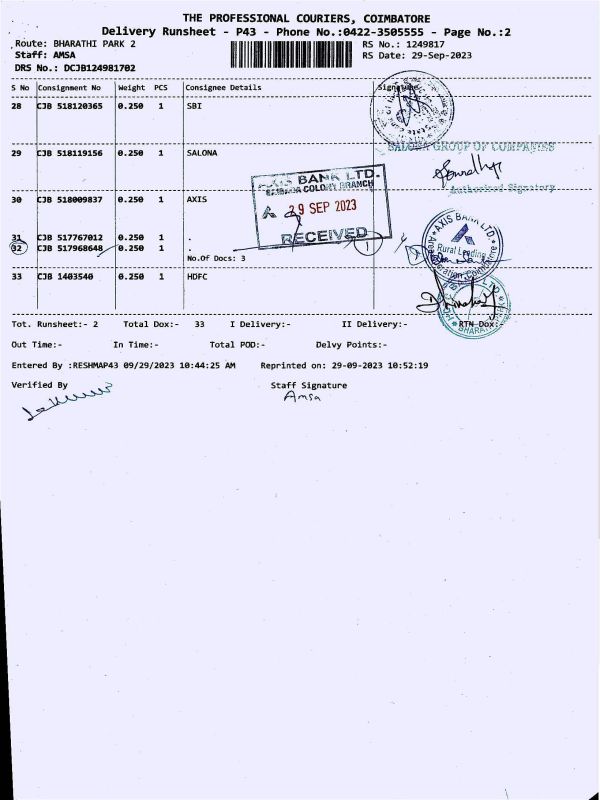 THE PROFESSIONAL COURIERS, COIMBATORE
Delivery Runsheet - P43 - Phone No.:0422-3505555 - Page No.:2
Route: BHARATHI PARK 2 RS No.: 1249817
Staff: AMSA RS Date: 29-Sep-2023
DRS No.: DCJB124981702
S No Consignment No Weight PCS Consignee Details Signature
28 CJB 518120365 0.250 1 SBI
29 CJB 518119156 0.250 1 SALONA
SALONA GROUP OF COMPANIES
Authorised Signatory
30 CJB 518009837 0.250 1 AXIS
AXIS BANK LTD.
SAIBABA COLONY BRANCH
29 SEP 2023
RECEIVED
1
31 CJB 517767012 0.250 1 .
32 CJB 517968648 0.250 1 .
No.Of Docs: 3
AXIS BANK LTD
Rural Lending
33 CJB 1403540 0.250 1 HDFC
Tot. Runsheet:- 2 Total Dox:- 33 I Delivery:- II Delivery:- RTN Dox:-
Out Time:- In Time:- Total POD:- Delvy Points:-
Entered By :RESHMAP43 09/29/2023 10:44:25 AM Reprinted on: 29-09-2023 10:52:19
Verified By Staff Signature
Amsa